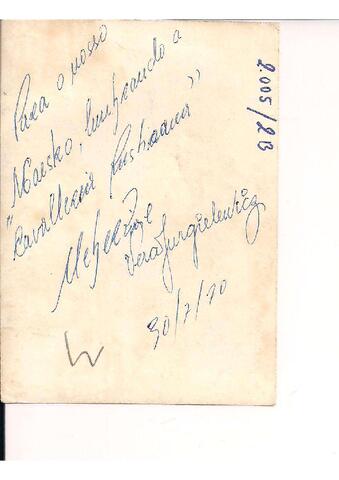 Para o nosso
Maesko, lembrando a
"Cavalleria Rusticana"
Vera Jurgielewicz
30/7/70
2.005/213